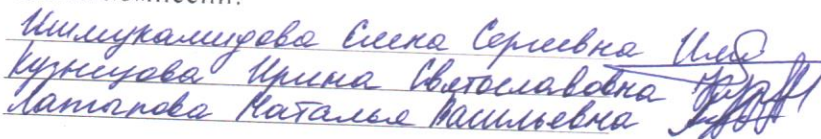 комиссии:
Ишмухамидова Елена Сергеевна
Кузнецова Ирина Святославовна
Латыпова Наталья Васильевна